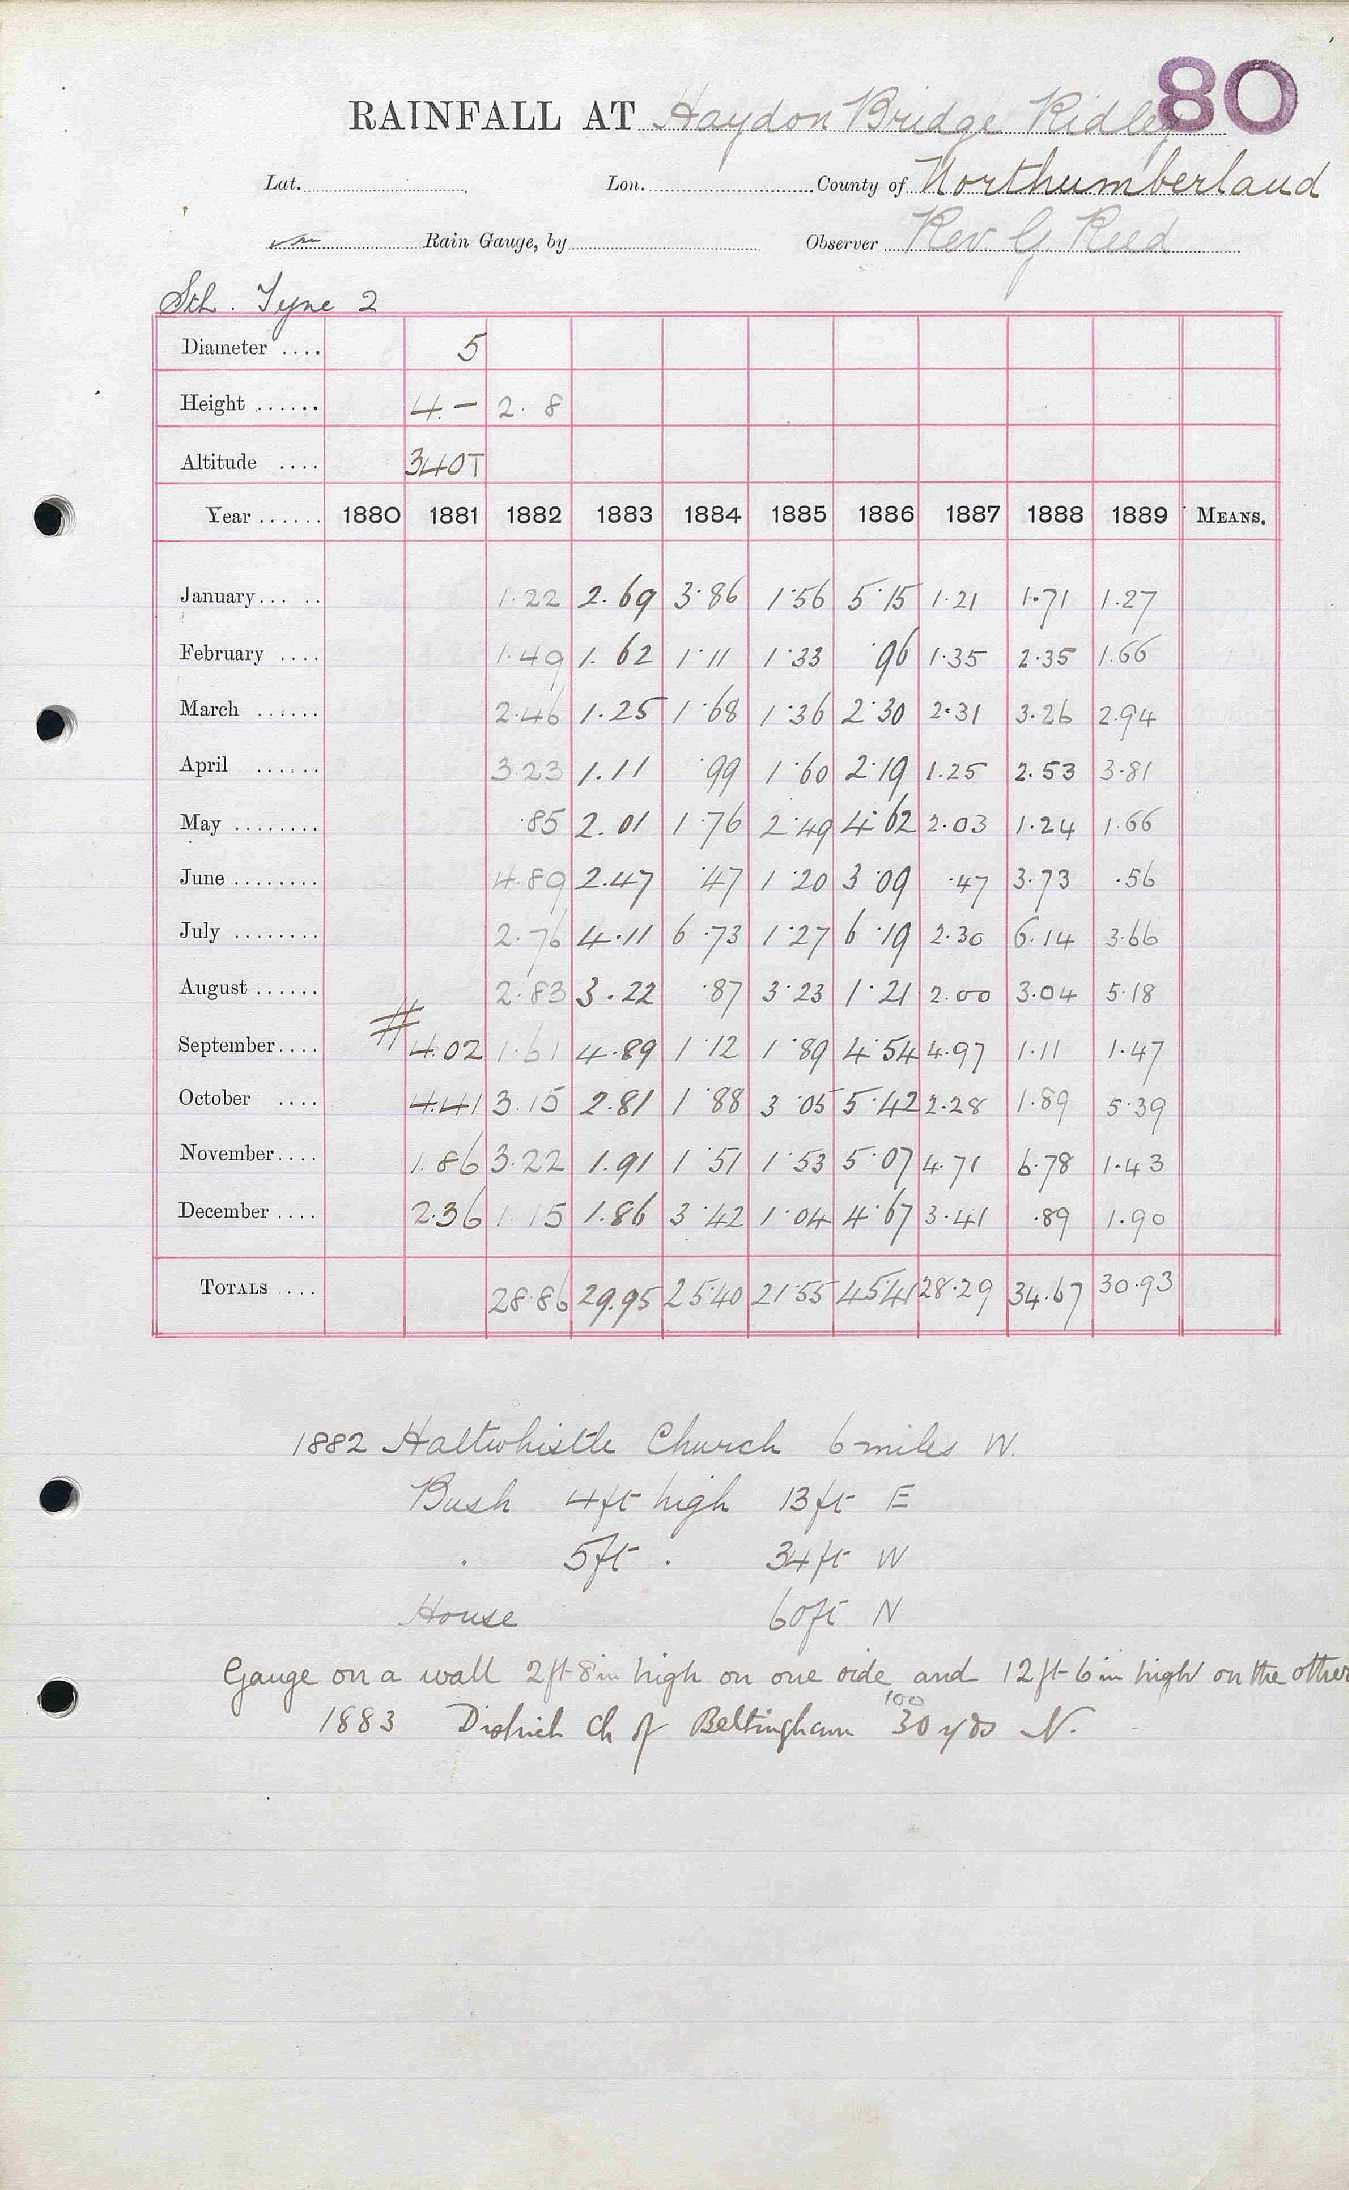 80
RAINFALL AT Haydon Bridge Ridley
Lat. Lon. County of Northumberland
Rain Gauge, by Observer Rev G Reed
Sth. Tyne 2
Diameter .... 5
Height ...... 4.- 2.8
Altitude .... 340T
Year ...... 1880 1881 1882 1883 1884 1885 1886 1887 1888 1889 MEANS.
January... .. 1.22 2.69 3.86 1.56 5.15 1.21 1.71 1.27
February .... 1.49 1.62 1.11 1.33 .96 1.35 2.35 1.66
March ...... 2.46 1.25 1.68 1.36 2.30 2.31 3.26 2.94
April ...... 3.23 1.11 .99 1.60 2.19 1.25 2.53 3.81
May ........ .85 2.01 1.76 2.49 4.62 2.03 1.24 1.66
June ........ 4.89 2.47 .47 1.20 3.09 .47 3.73 .56
July ........ 2.76 4.11 6.73 1.27 6.19 2.30 6.14 3.66
August ...... 2.83 3.22 .87 3.23 1.21 2.00 3.04 5.18
September.... # 4.02 1.61 4.89 1.12 1.89 4.54 4.97 1.11 1.47
October .... 4.41 3.15 2.81 1.88 3.05 5.42 2.28 1.89 5.39
November.... 1.86 3.22 1.91 1.51 1.53 5.07 4.71 6.78 1.43
December .... 2.36 1.15 1.86 3.42 1.04 4.67 3.41 .89 1.90
TOTALS .... 28.86 29.95 25.40 21.55 45.41 28.29 34.67 30.93
1882 Haltwhistle Church 6 miles W.
Bush 4ft high 13ft E
. 5ft . 34ft W
House 60ft N
Gauge on a wall 2ft 8in high on one side and 12ft 6in high on the other
100
1883 District Ch of Beltingham 30 yds N.